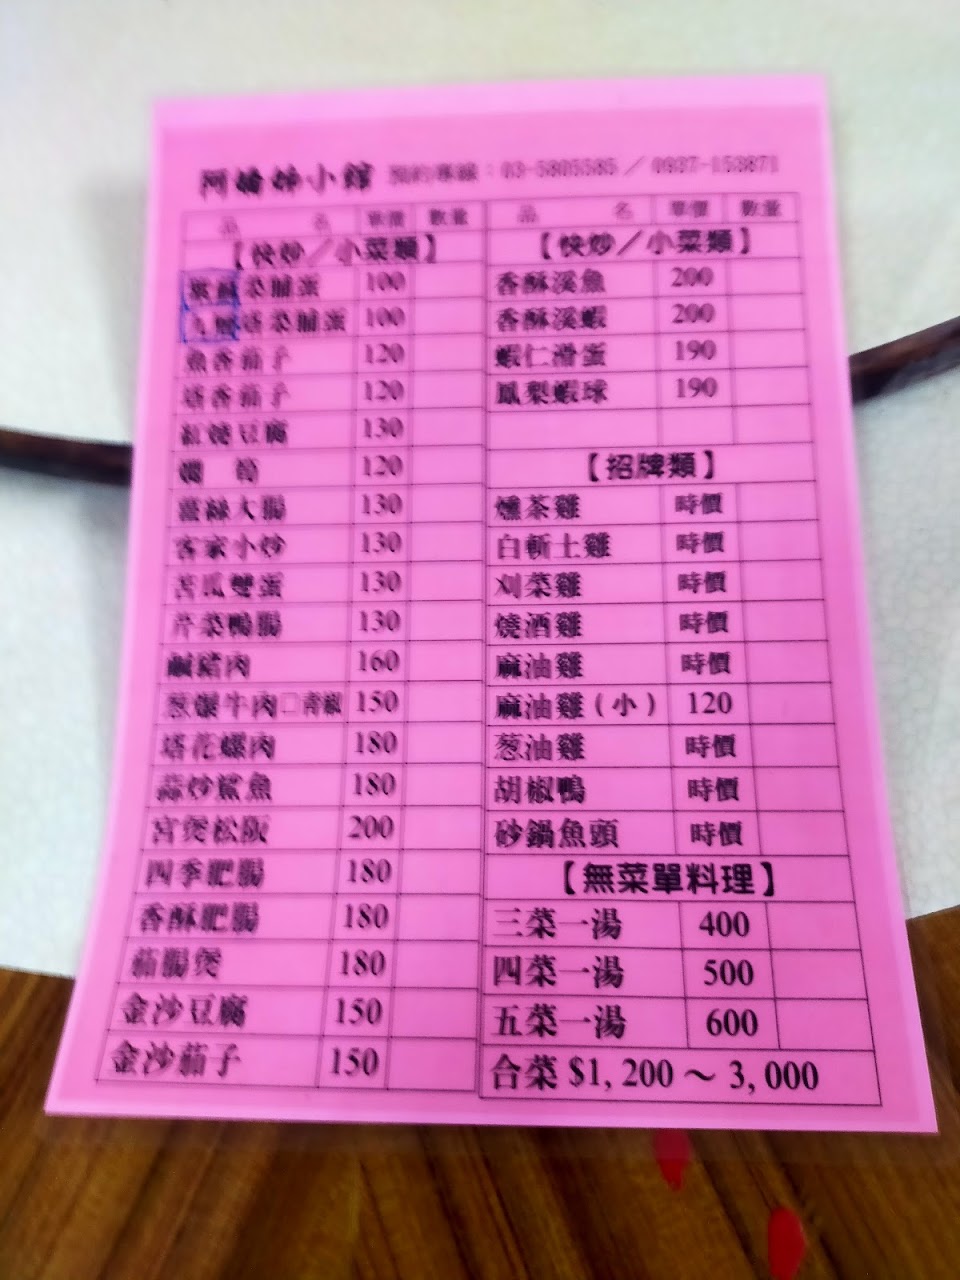 阿嬌姊小館 預約專線：03-5805585／0937-153871
品 名 單價 數量
【快炒／小菜類】
菜脯蛋 100
塔菜脯蛋 100
魚香茄子 120
塔香茄子 120
紅燒豆腐 130
筍 120
薑絲大腸 130
客家小炒 130
苦瓜雙蛋 130
芹菜鴨腸 130
鹹豬肉 160
葱爆牛肉□青椒 150
塔花螺肉 180
蒜炒鯊魚 180
宮煲松阪 200
四季肥腸 180
香酥肥腸 180
茄腸煲 180
金沙豆腐 150
金沙茄子 150
品 名 單價 數量
【快炒／小菜類】
香酥溪魚 200
香酥溪蝦 200
蝦仁滑蛋 190
鳳梨蝦球 190
【招牌類】
燻茶雞 時價
白斬土雞 時價
刈菜雞 時價
燒酒雞 時價
麻油雞 時價
麻油雞（小） 120
葱油雞 時價
胡椒鴨 時價
砂鍋魚頭 時價
【無菜單料理】
三菜一湯 400
四菜一湯 500
五菜一湯 600
合菜 $1,200～3,000